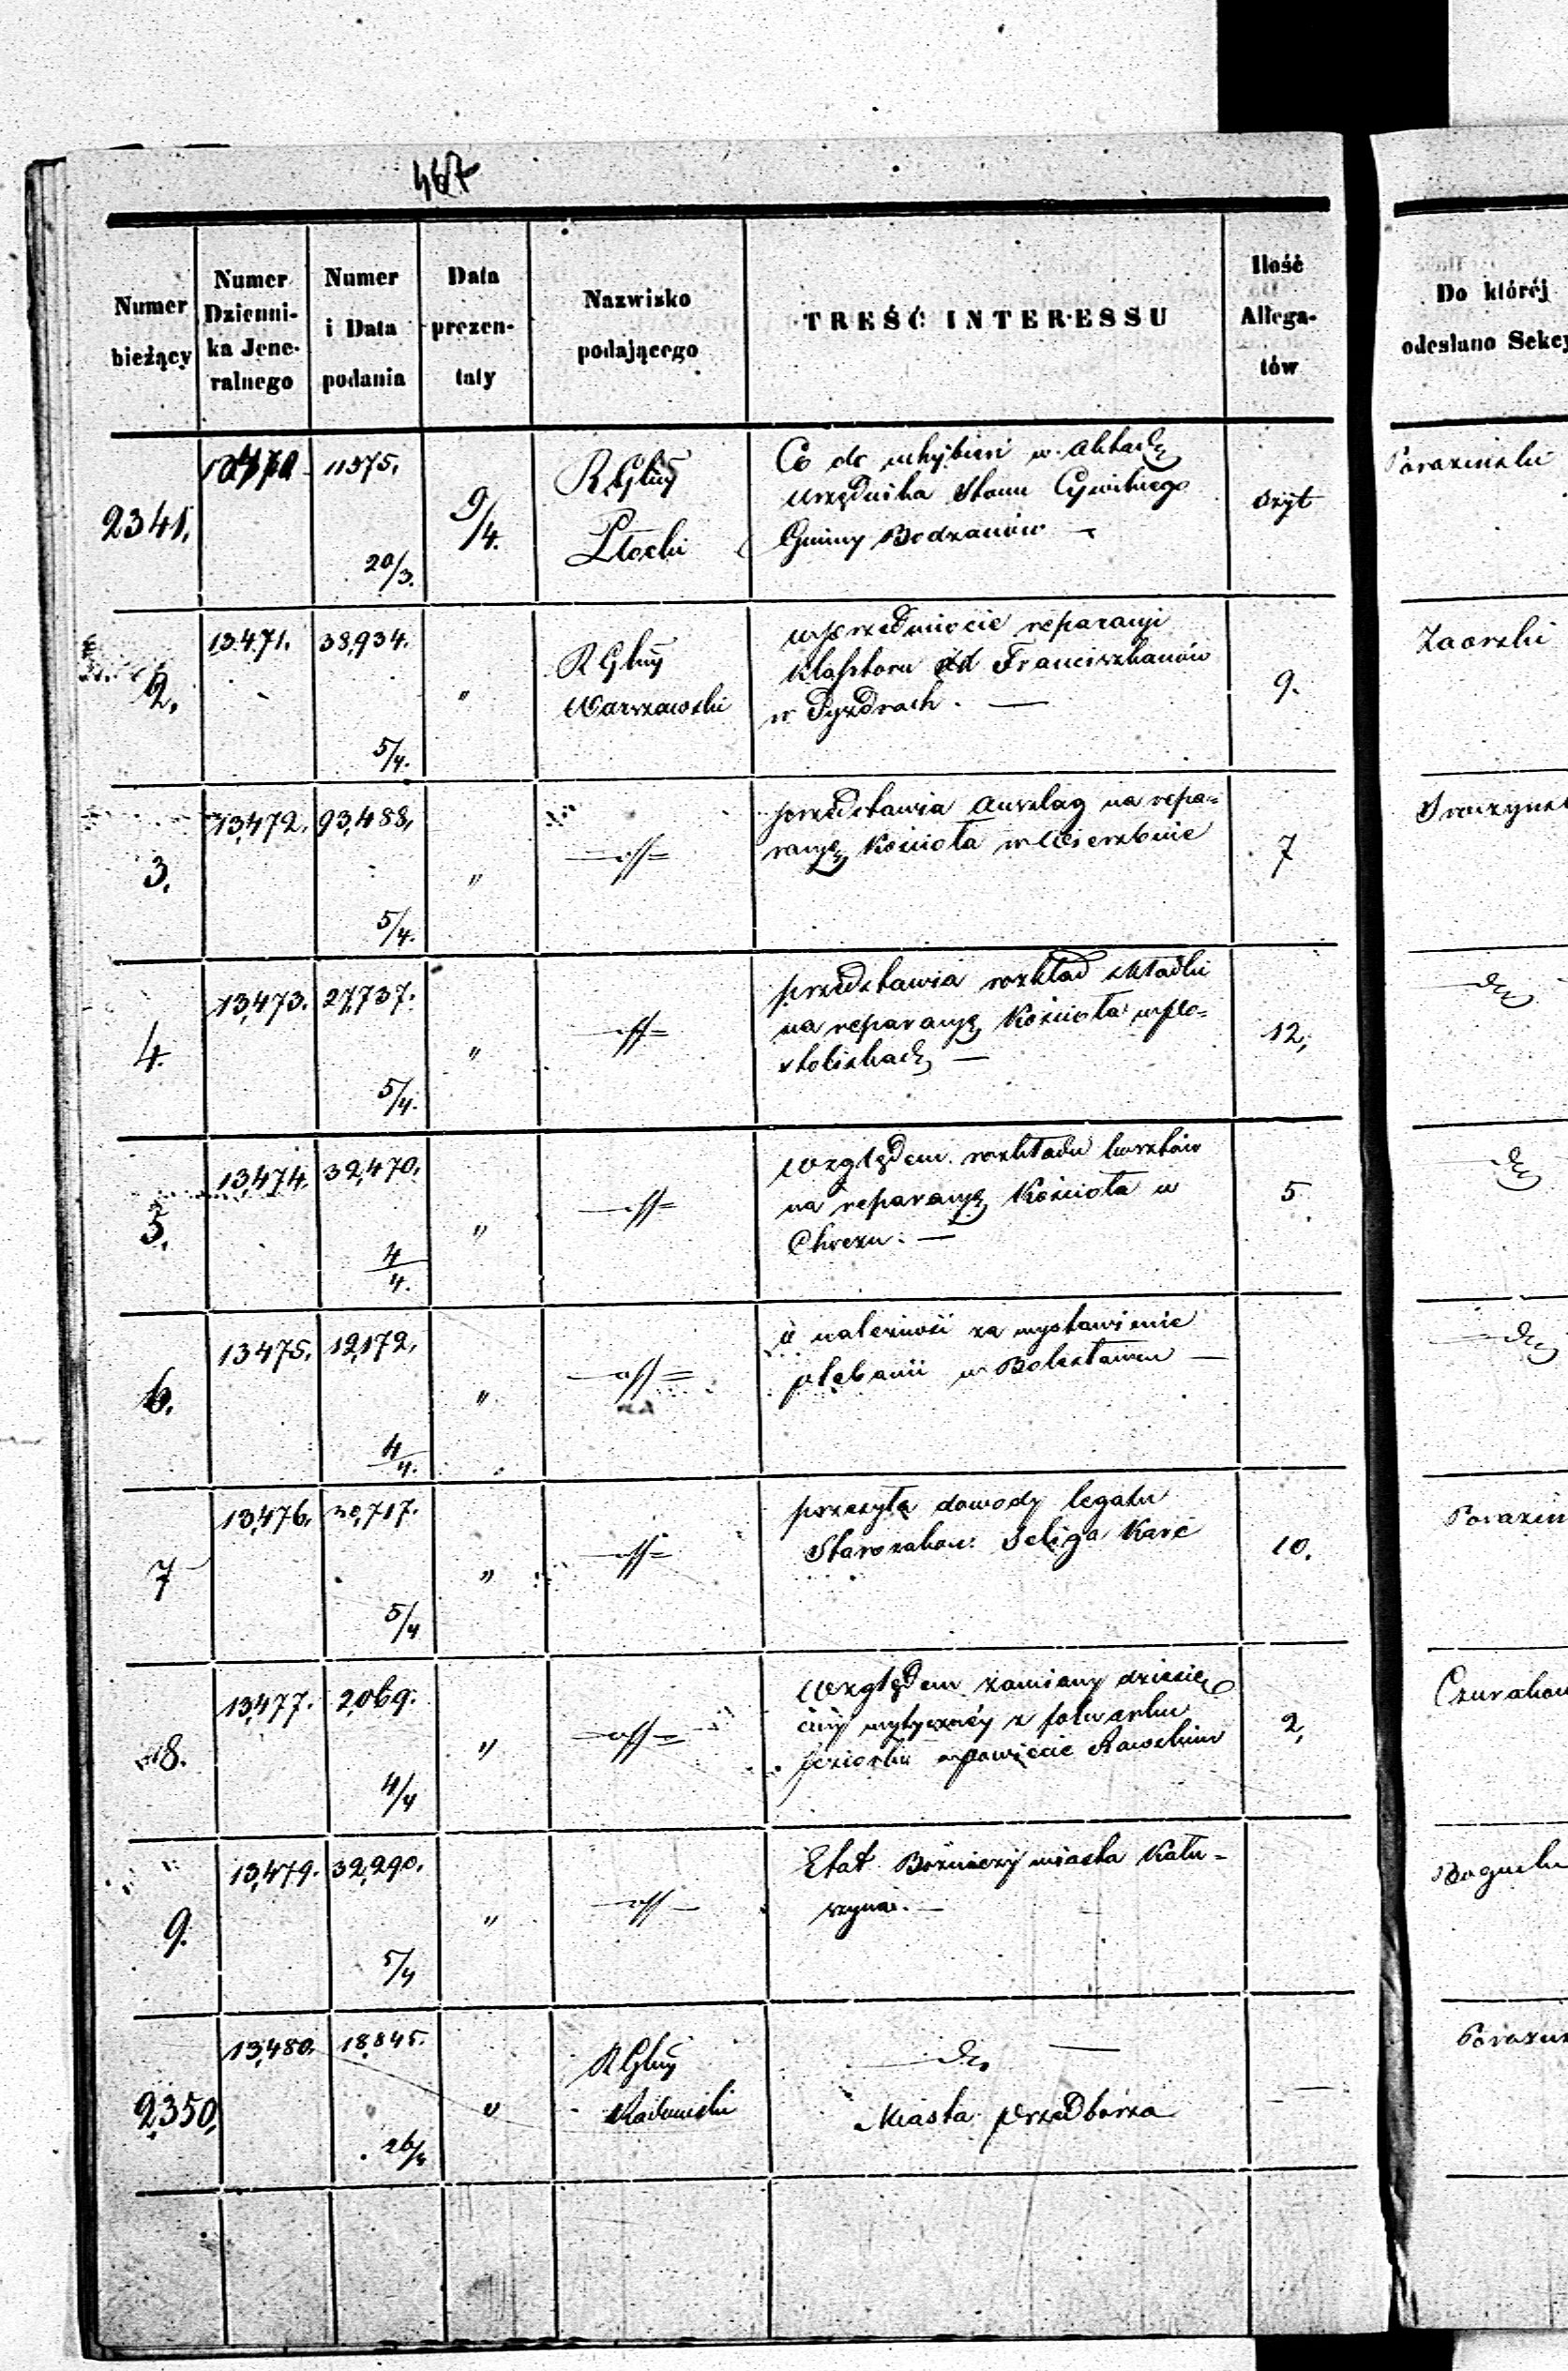 467
Numer bieżący
Numer Dzienni- ka Jene- ralnego
Numer i Data podania
Data prezen- taty
Nazwisko podającego
TREŚĆ INTERESSU
Ilość Allega- tów
Do któréj odesłano Sekcy
2341. 11375. 20/3. 9/4. R Gbny Płocki
Co do uchybień w Aktach
Urzędnika Stanu Cywilnego
Gminy Bodzanów —
Szyt
2. 13471. 38,934. 5/4. " R Gbny Warszawski
w przedmiocie reparacyi
Klasztoru Franciszkanów
w Pyzdrach. —
9.
Zaorski
3. 13,472. 93,488. 5/4. "
przedstawia Anszlag na repa=
racyę Kościoła w Wierzbnie
7
4. 13,473. 27,737. 5/4. "
przedstawia rozkład składki
na reparacyę Kościoła
12,
do
5. 13,474. 32,470. 4/4. "
Względem rozkładu kosztów
na reparacyę Kościoła w
5
do
6. 13475. 12,172. 4/4. "
o należność za wystawienie
plebanii w Bolesławcu —
do
7 13,476. 30,717. 5/4 "
przesyła dowody legatu
Starozakon: Seliga Karć
10.
8. 13,477. 2,069. 4/4 "
Względem zamiany dziesię
ciny wytycznéj z folwarku
w powiecie Rawskim
2,
9. 13,479. 32,290. 5/4 "
Etat Bóżniczy miasta Kału-
szyna. —
2,350, 13,480. 18,845. " R Gbny Radomski
do —
Miasta Przedborza
—